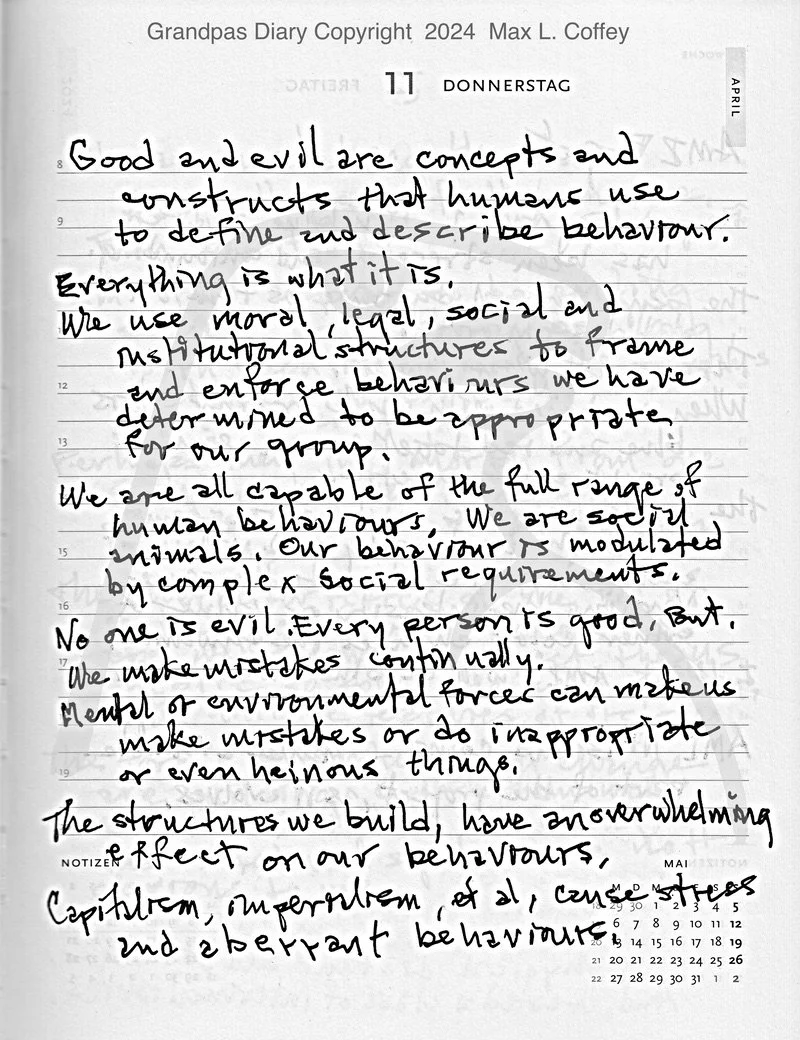 Grandpas Diary Copyright 2024 Max L. Coffey
11 DONNERSTAG
APRIL
8 Good and evil are concepts and
constructs that humans use
9 to define and describe behaviour.
Everything is what it is.
We use moral, legal, social and
institutional structures to frame
12 and enforce behaviours we have
determined to be appropriate
13 for our group.
We are all capable of the full range of
human behaviours, We are social
15 animals. Our behaviour is modulated
by complex social requirements.
16 No one is evil. Every person is good, But.
17 We make mistakes continually.
Mental or environmental forces can make us
make mistakes or do inappropriate
19 or even heinous things.
The structures we build, have an overwhelming
NOTIZEN effect on our behaviours,
MAI
Capitalism, imperialism, et al, cause stress
and aberrant behaviours.
M D M D F S S
18 29 30 1 2 3 4 5
6 7 8 9 10 11 12
20 13 14 15 16 17 18 19
21 20 21 22 23 24 25 26
22 27 28 29 30 31 1 2